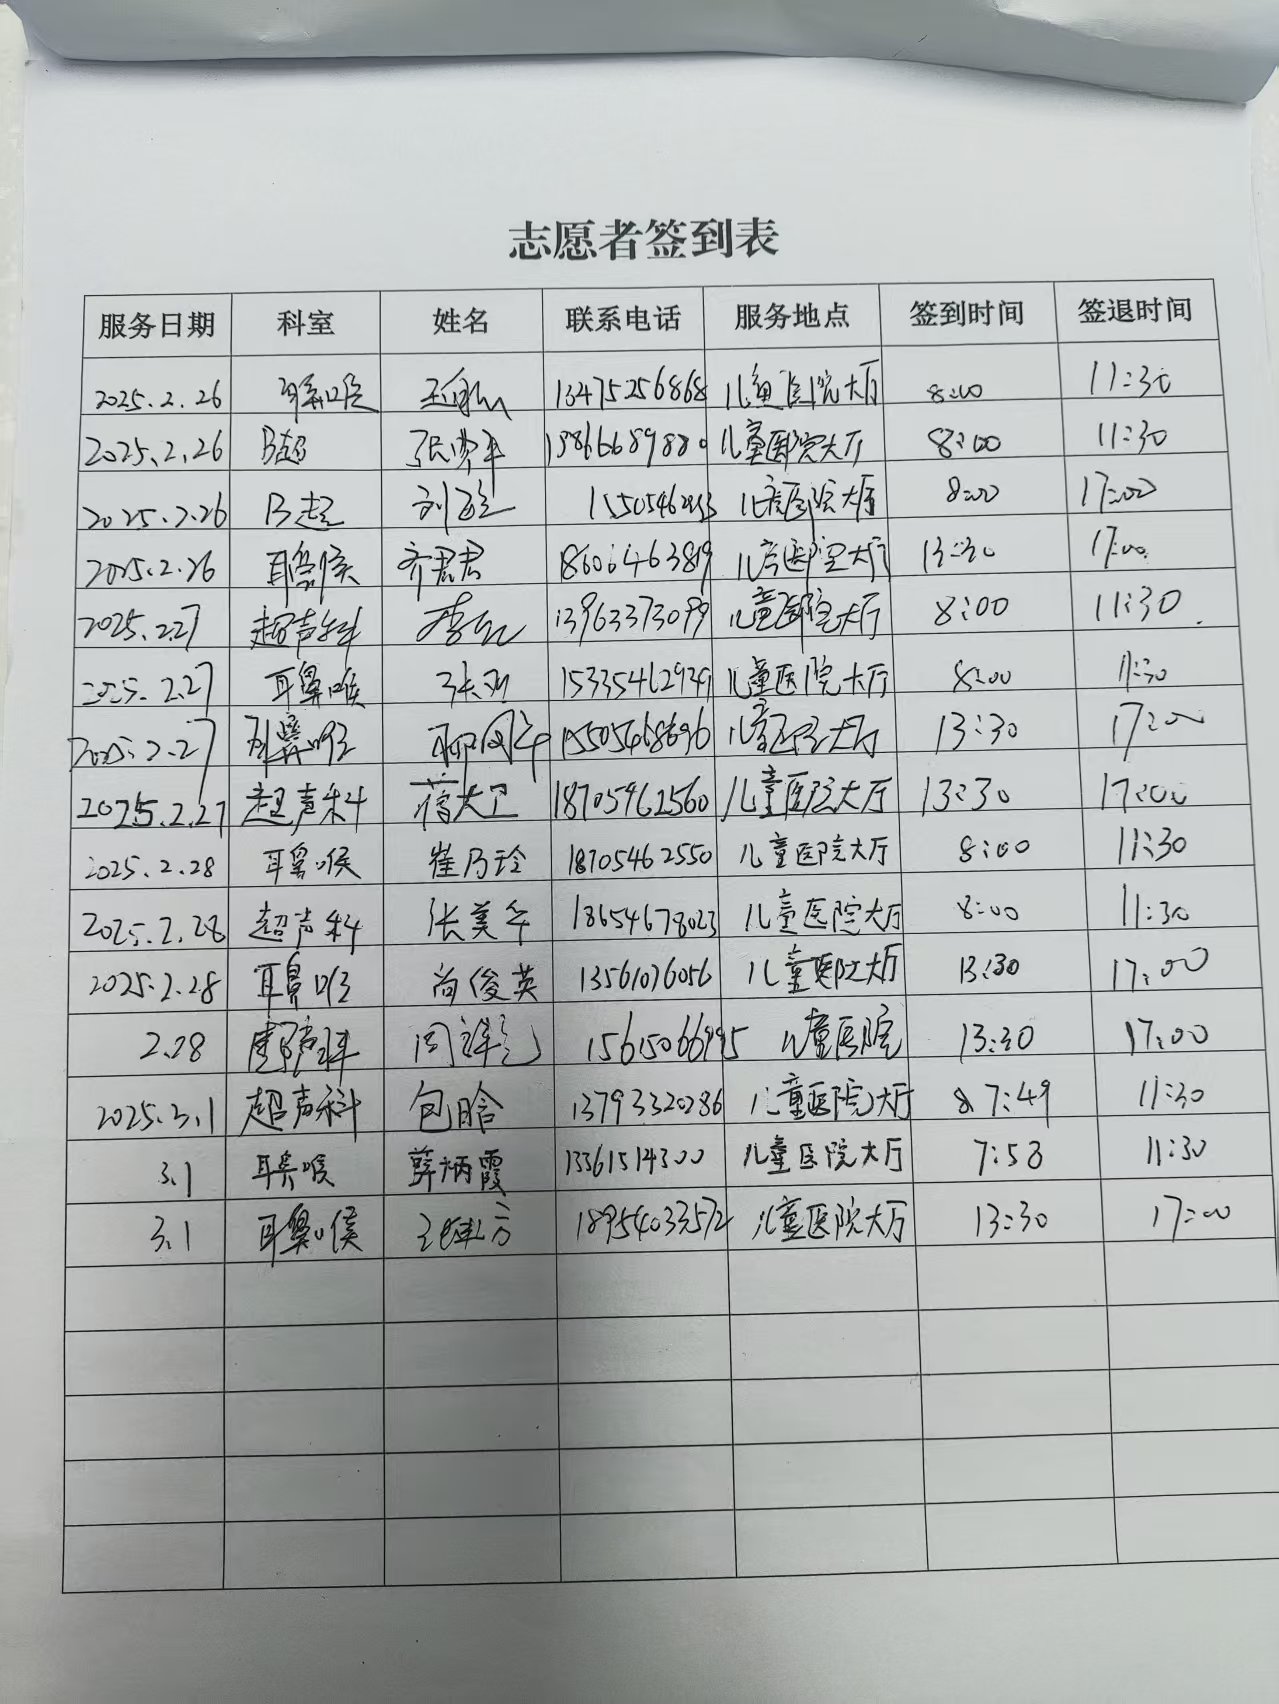 志愿者签到表
服务日期 科室 姓名 联系电话 服务地点 签到时间 签退时间
2025.2.26 耳鼻喉 13475256868 儿童医院大厅 8:00 11:30
2025.2.26 B超 13866689880 儿童医院大厅 8:00 11:30
2025.2.26 B超 儿童医院大厅 8:00 17:00
2025.2.26 耳鼻喉 齐君君 18606463819 儿童医院大厅 13:30 17:00
2025.2.27 超声科 13963373099 儿童医院大厅 8:00 11:30
2025.2.27 耳鼻喉 15335462939 儿童医院大厅 8:00 11:30
2025.2.27 耳鼻喉 15505468696 儿童医院大厅 13:30 17:00
2025.2.27 超声科 蒋大卫 18705462560 儿童医院大厅 13:30 17:00
2025.2.28 耳鼻喉 崔乃玲 18705462550 儿童医院大厅 8:00 11:30
2025.2.28 超声科 张美华 18654678023 儿童医院大厅 8:00 11:30
2025.2.28 耳鼻喉 尚俊英 13561076056 儿童医院大厅 13:30 17:00
2.28 儿童医院 13:30 17:00
2025.3.1 超声科 包晗 13793320286 儿童医院大厅 7:49 11:30
3.1 耳鼻喉 薛炳霞 13361514300 儿童医院大厅 7:58 11:30
3.1 耳鼻喉 18954033572 儿童医院大厅 13:30 17:00